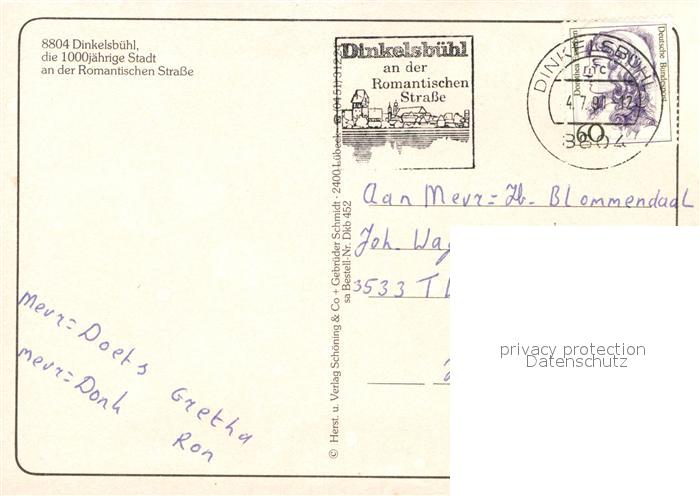 8804 Dinkelsbühl,
die 1000jährige Stadt
an der Romantischen Straße
Dinkelsbühl
an der
Romantischen
Straße
DINKELSBÜHL
4.7.90
8804
Deutsche Bundespost
60
© Herst. u. Verlag Schöning & Co + Gebrüder Schmidt · 2400 Lübeck
sa Bestell-Nr. Dkb 452
Aan Mevr= Blommendaal
Joh. Wag
3533 T
Mevr= Doets
Mevr= Donk
Gretha
Ron
privacy protection
Datenschutz